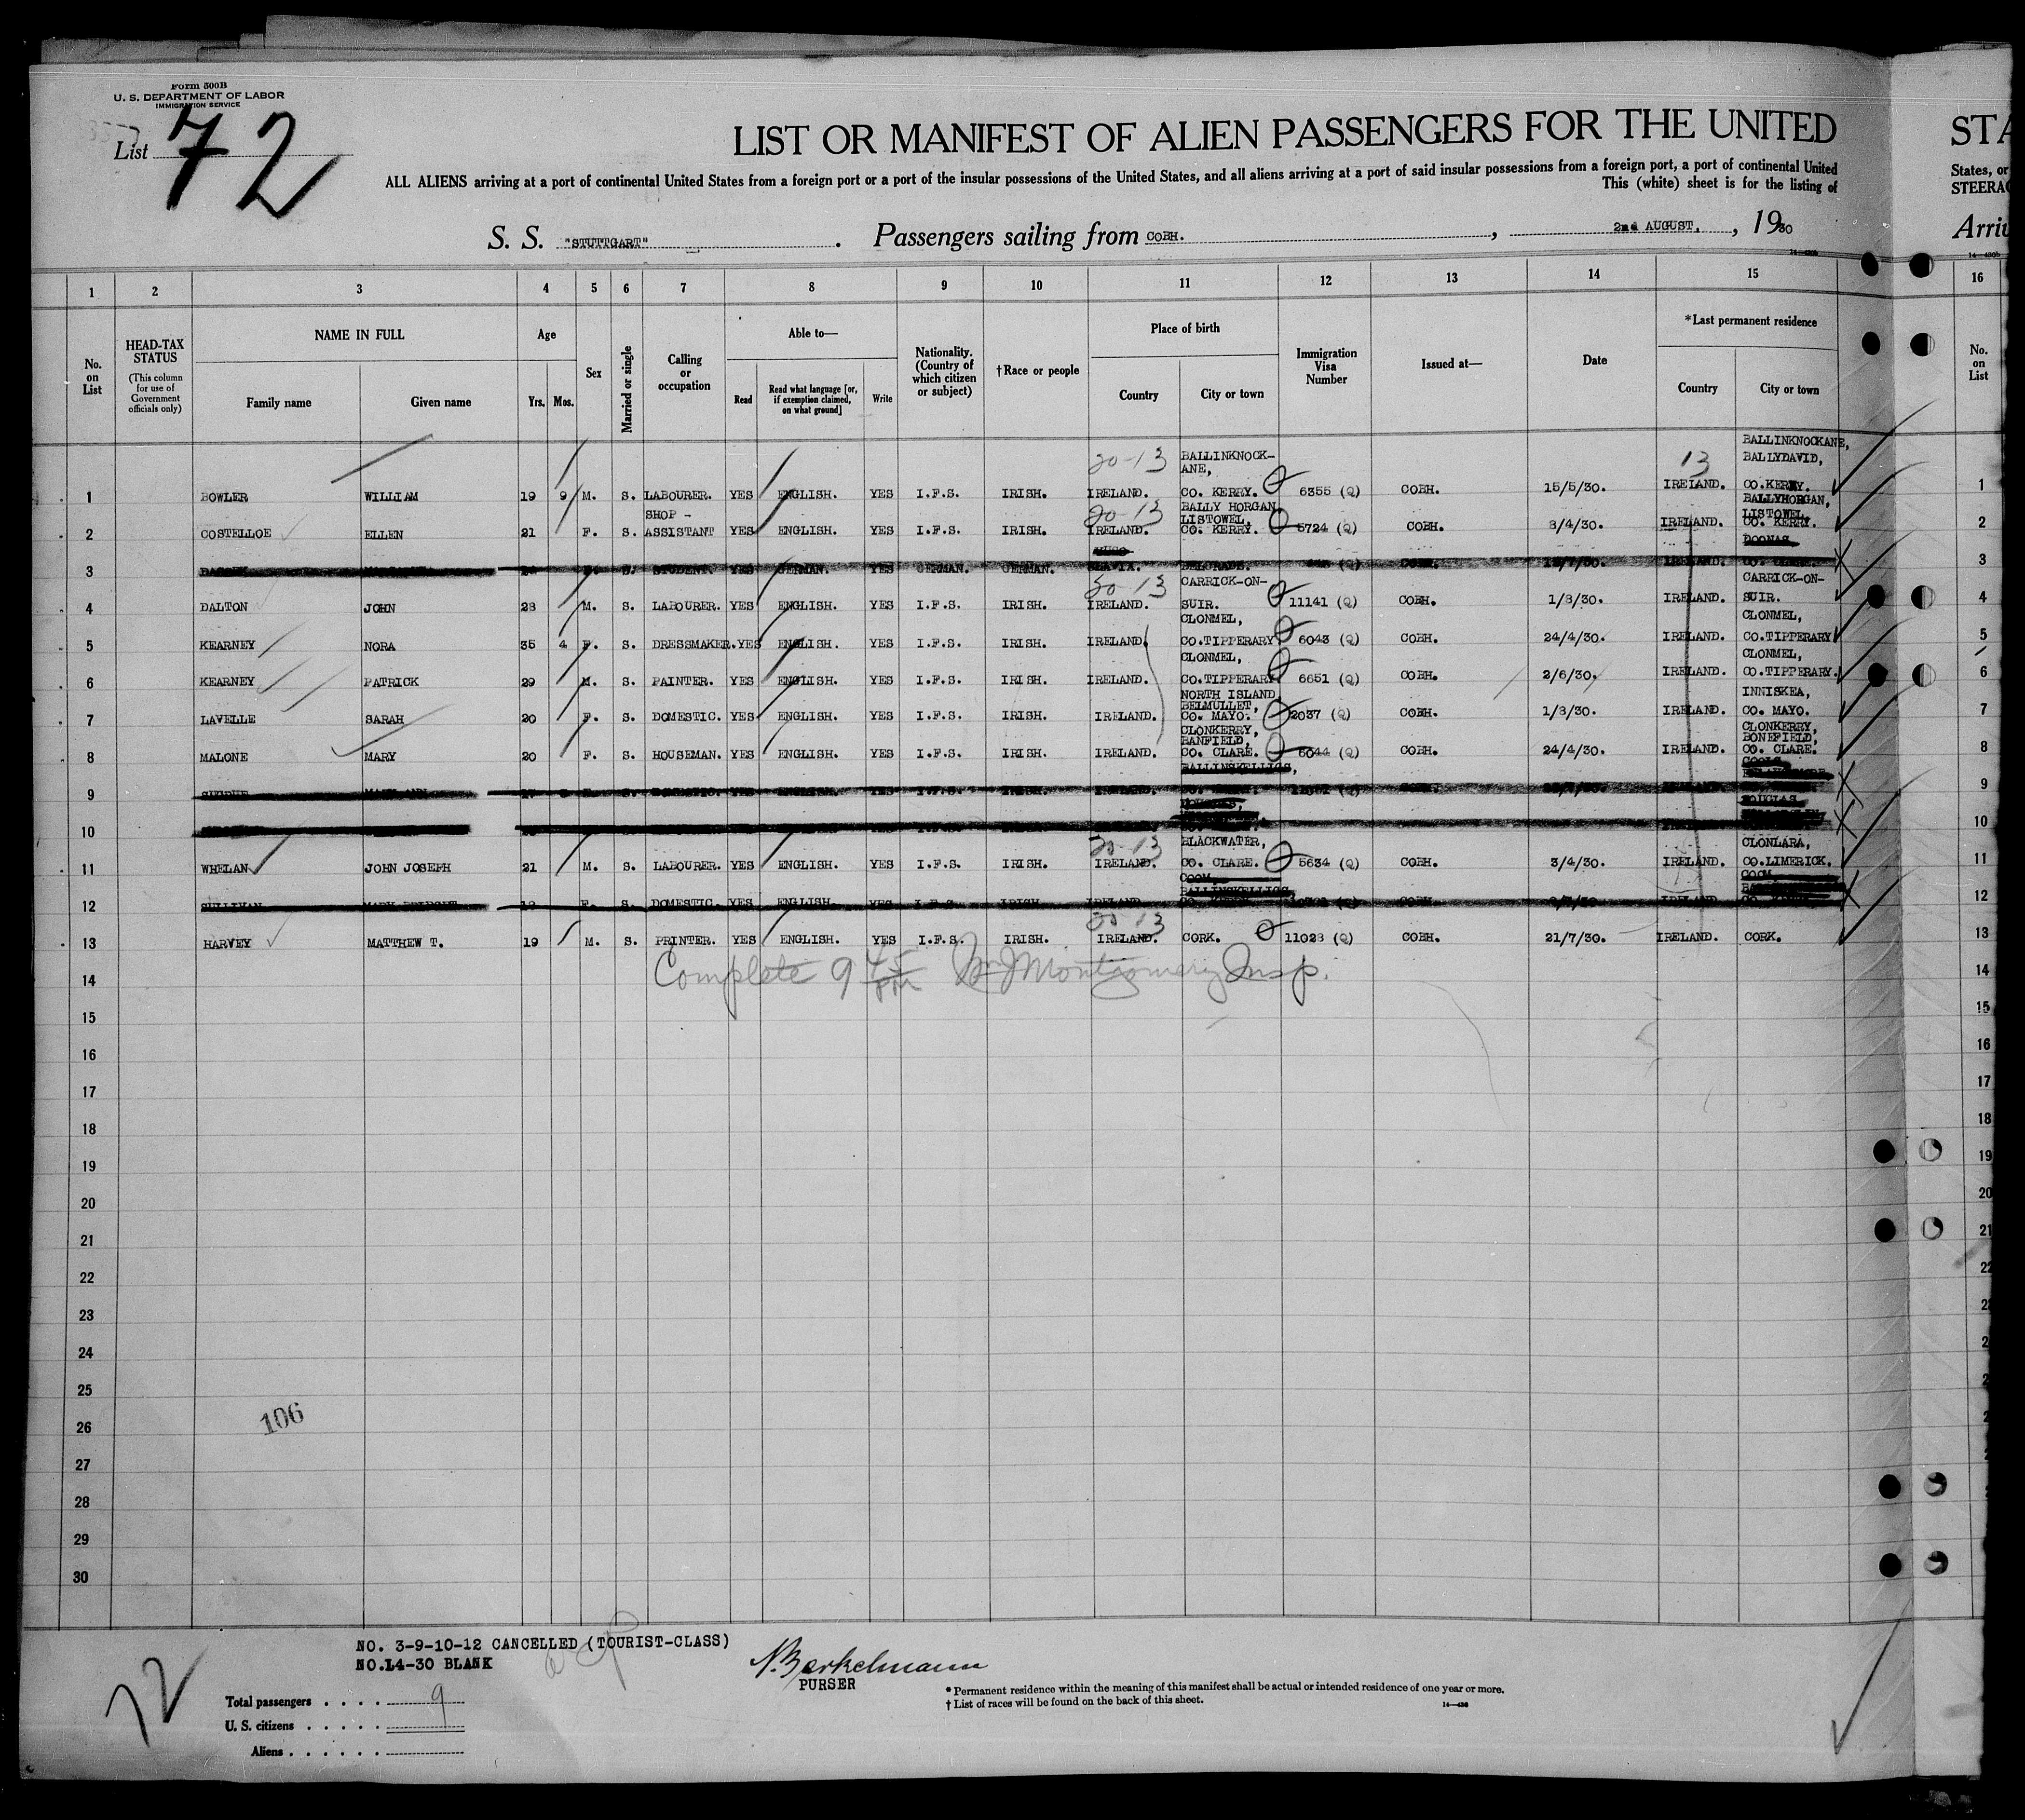 Form 500B
U. S. DEPARTMENT OF LABOR
IMMIGRATION SERVICE
List 72
LIST OR MANIFEST OF ALIEN PASSENGERS FOR THE UNITED
STA
ALL ALIENS arriving at a port of continental United States from a foreign port or a port of the insular possessions of the United States, and all aliens arriving at a port of said insular possessions from a foreign port, a port of continental United
States, or
This (white) sheet is for the listing of
STEERAG
S. S. "STUTTGART" . Passengers sailing from COBH. , 2nd AUGUST. , 1930
Arriv
14—430b
14—430b
1 2 3 4 5 6 7 8 9 10 11 12 13 14 15 16
No. on List
HEAD-TAX STATUS
(This column for use of Government officials only)
NAME IN FULL
Family name
Given name
Age
Yrs. Mos.
Sex
Married or single
Calling or occupation
Able to—
Read
Read what language [or, if exemption claimed, on what ground]
Write
Nationality. (Country of which citizen or subject)
†Race or people
Place of birth
Country
City or town
Immigration Visa Number
Issued at—
Date
*Last permanent residence
Country
City or town
No. on List
20-13 BALLINKNOCK-ANE, 13 BALLINKNOCKANE, BALLYDAVID,
1 BOWLER WILLIAM 19 9 M. S. LABOURER. YES ENGLISH. YES I.F.S. IRISH. IRELAND. CO. KERRY. 6355 (Q) COBH. 15/5/30. IRELAND. CO.KERRY. 1
SHOP - 20-13 BALLY HORGAN LISTOWEL, BALLYHORGAN, LISTOWEL,
2 COSTELLOE ELLEN 21 F. S. ASSISTANT YES ENGLISH. YES I.F.S. IRISH. IRELAND. CO. KERRY. 5724 (Q) COBH. 8/4/30. IRELAND. CO. KERRY. 2
DOONAS
3 S. STUDENT. YES GERMAN. YES GERMAN. GERMAN. BELGRADE. (Q) COBH. IRELAND. 3
30-13 CARRICK-ON- CARRICK-ON-
4 DALTON JOHN 28 M. S. LABOURER. YES ENGLISH. YES I.F.S. IRISH. IRELAND. SUIR. 11141 (Q) COBH. 1/8/30. IRELAND. SUIR. 4
CLONMEL, CLONMEL,
5 KEARNEY NORA 35 4 F. S. DRESSMAKER. YES ENGLISH. YES I.F.S. IRISH. IRELAND. CO.TIPPERARY 6043 (Q) COBH. 24/4/30. IRELAND. CO.TIPPERARY 5
CLONMEL, CLONMEL,
6 KEARNEY PATRICK 29 M. S. PAINTER. YES ENGLISH. YES I.F.S. IRISH. IRELAND. CO.TIPPERARY 6651 (Q) COBH. 2/6/30. IRELAND. CO.TIPPERARY. 6
NORTH ISLAND BELMULLET, INNISKEA,
7 LAVELLE SARAH 20 F. S. DOMESTIC. YES ENGLISH. YES I.F.S. IRISH. IRELAND. CO. MAYO. 2037 (Q) COBH. 1/8/30. IRELAND. CO. MAYO. 7
CLONKERRY, BANFIELD, CLONKERRY, BONEFIELD,
8 MALONE MARY 20 F. S. HOUSEMAN. YES ENGLISH. YES I.F.S. IRISH. IRELAND. CO. CLARE. 6044 (Q) COBH. 24/4/30. IRELAND. CO. CLARE. 8
BALLINSKELLIGS,
9 DOMESTIC. YES ENGLISH. YES I.F.S. IRISH. IRELAND. COBH. 9
DOUGLAS
10 10
20-13 BLACKWATER, CLONLARA,
11 WHELAN JOHN JOSEPH 21 M. S. LABOURER. YES ENGLISH. YES I.F.S. IRISH. IRELAND. CO. CLARE. 5634 (Q) COBH. 3/4/30. IRELAND. CO.LIMERICK. 11
COOM, BALLINSKELLIGS COOM
12 SULLIVAN MARY BRIDGET 18 F. S. DOMESTIC. YES ENGLISH. YES I.F.S. IRISH. IRELAND. CO. KERRY. COBH. IRELAND. 12
20-13
13 HARVEY MATTHEW T. 19 M. S. PRINTER. YES ENGLISH. YES I.F.S. IRISH. IRELAND. CORK. 11028 (Q) COBH. 21/7/30. IRELAND. CORK. 13
Complete 9 45 PM Wm J Montgomery Insp.
14 14
15 15
16 16
17 17
18 18
19 19
20 20
21 21
22 22
23
24
25
26
106
27
28
29
30
NO. 3-9-10-12 CANCELLED (TOURIST-CLASS)
NO.14-30 BLANK
N. Berkelmann
PURSER
72
Total passengers . . . . 9
U. S. citizens . . . . .
Aliens . . . . . .
* Permanent residence within the meaning of this manifest shall be actual or intended residence of one year or more.
† List of races will be found on the back of this sheet.
14—430